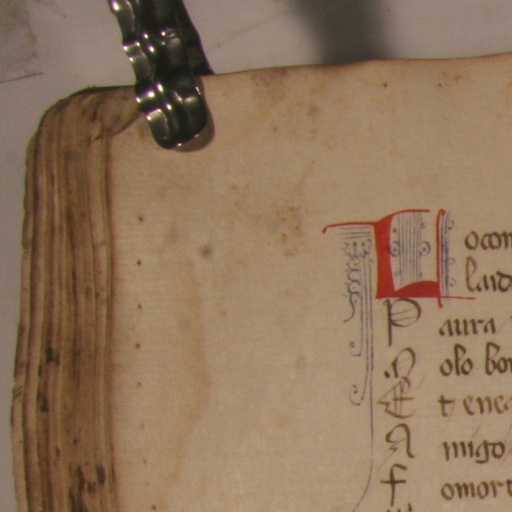 L ocom
laud
P aura
S olo bo
E t enea
A migo
f omort